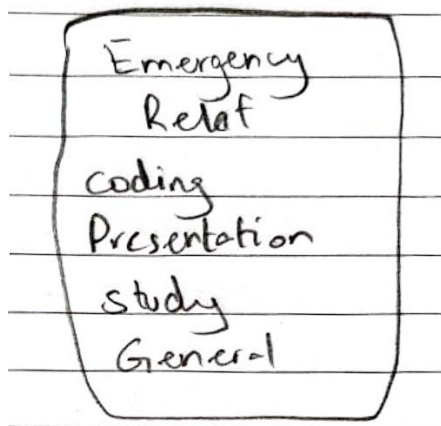 Emergency
Relaf
coding
Presentation
study
General